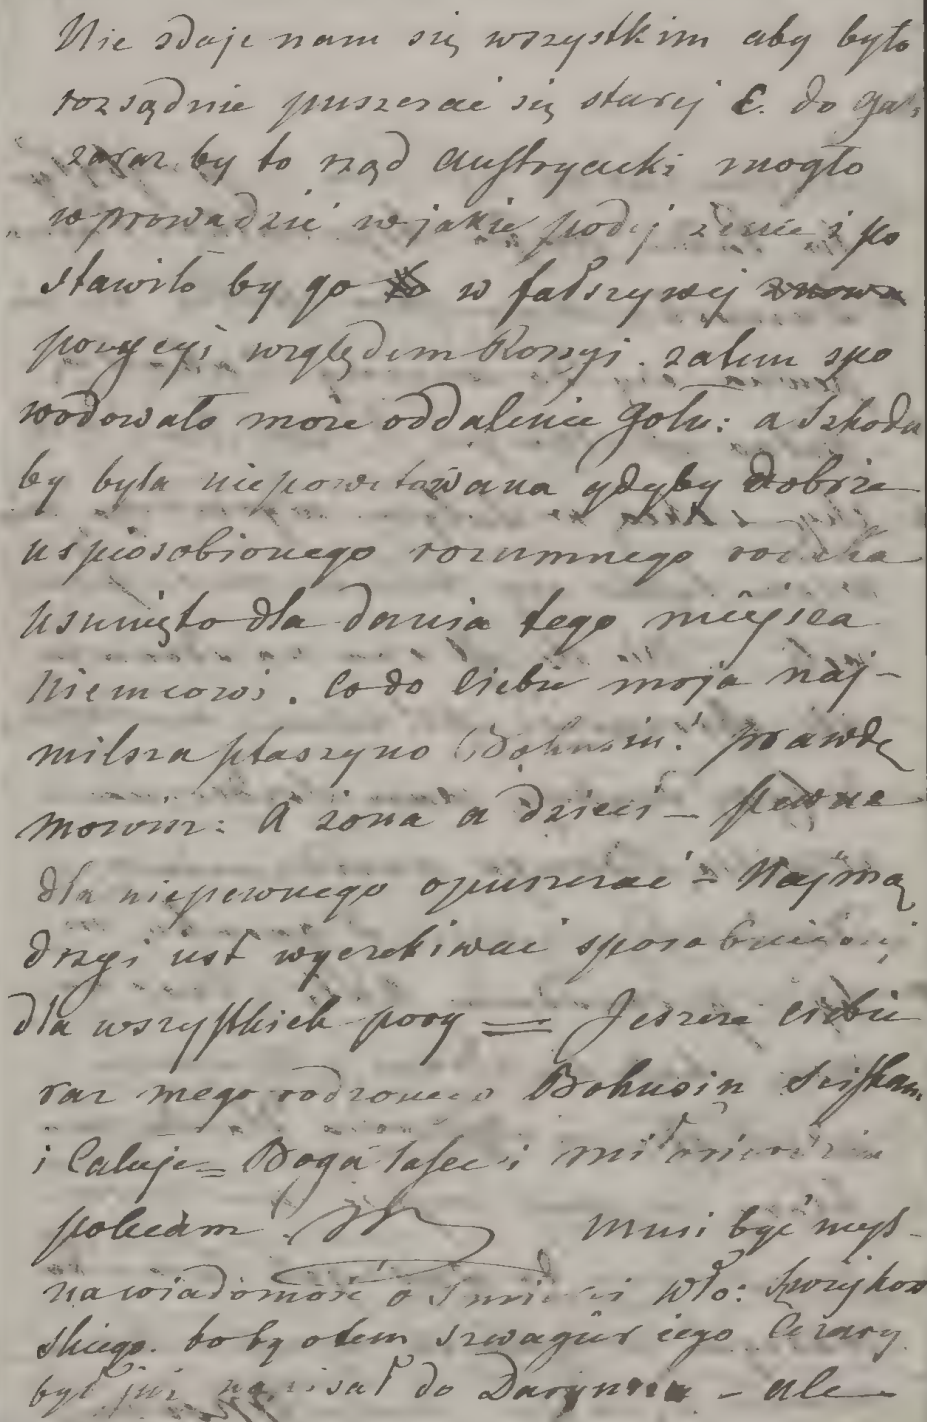 Nie zdaje nam się wszystkim aby było
rozsądnie puszczać się starej C. do
zaraz by to rząd Austryacki mogło
wprowadzić w jakie podej zenie i po
stawiło by go w fałszywej znowu
pozycyi względem Rossyi. zatem spo
wodowało może oddalenie Gołu: a szkoda
by była niepowetowana gdyby dobrze
usposobionego rozumnego
usunięto dla dania tego miejsca
Niemcowi. Co do Ciebie moja naj-
milsza ptaszyno Bohusiu! prawdę
mowisz: A żona a dzieci – pewne
dla niepewnego opuszczać – Najmą
drzej jest wyczekiwać sposobniejszej
dla wszystkich pory = Jeszcze Ciebie
raz mego rodzonego Bohusia sciskam
i Całuje = Boga łasce i miłosierdziu
polecam. Musi być myl-
na wiadomość o smierci Wło: Swiejkow
skiego. bo by o tem szwagier iego Cezary
był już napisał do Darynwa – ale